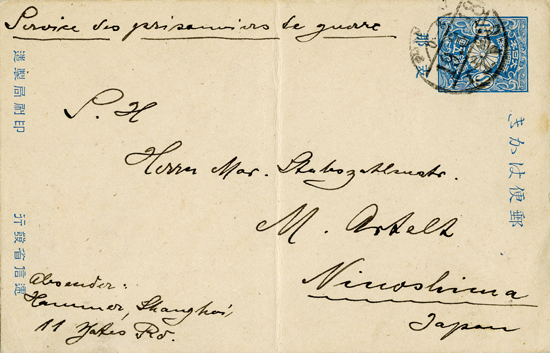 Service des prisonniers de guerre
S. H
Herrn Mar. Stabszahlmstr.
M. Artelt
Ninoshima
Japan
Absender:
Hammer, Shanghai,
11 Yates Rd.
郵便はかき
造製局刷印
行發省信逓